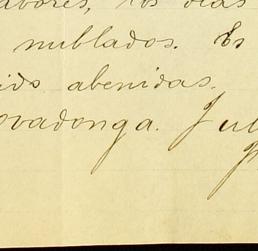 labores, los dias
nublados. Es
abenidas.
ovadonga. Jul